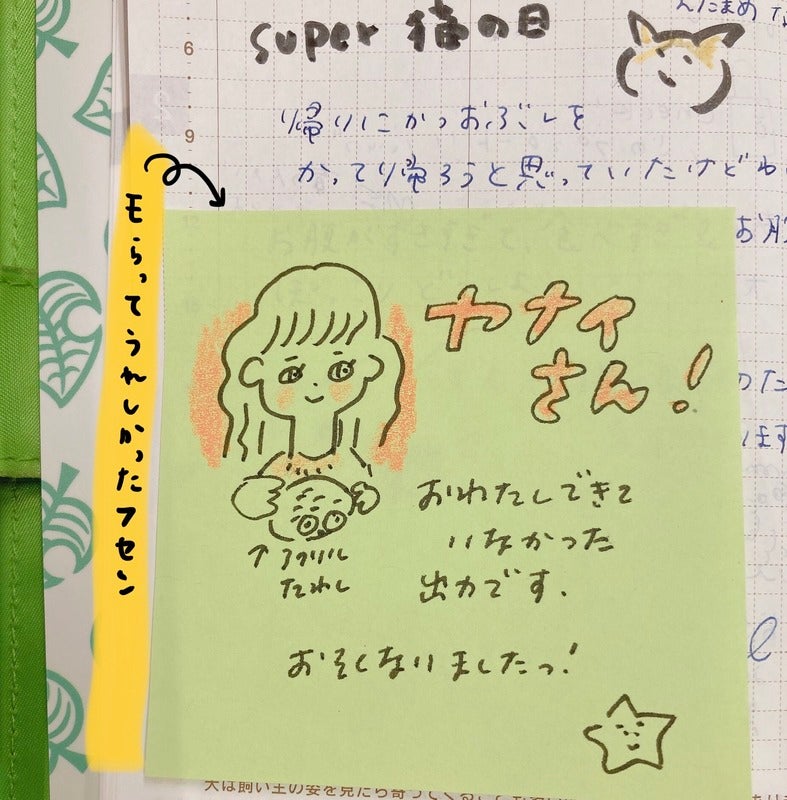 んだまめ
super 猫の日
6
帰りにかつおぶしを
9
かって帰ろうと思っていたけどわ
もらってうれしかったフセン
お腹
ヤナイ
さん!
のた
ます
おわたしできて
いなかった
出力です.
↑アクリル
たわし
おそくなりましたっ!
犬は飼い主の姿を見たら寄ってくる